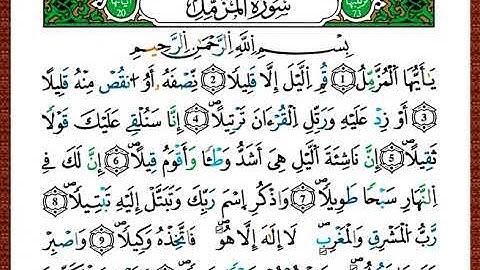 سُورَةُ المُزَّمِّل
بِسْمِ اللَّهِ الرَّحْمَٰنِ الرَّحِيمِ
يَا أَيُّهَا الْمُزَّمِّلُ ۝1 قُمِ اللَّيْلَ إِلَّا قَلِيلًا ۝2 نِّصْفَهُ أَوِ انقُصْ مِنْهُ قَلِيلًا
۝3 أَوْ زِدْ عَلَيْهِ وَرَتِّلِ الْقُرْءَانَ تَرْتِيلًا ۝4 إِنَّا سَنُلْقِي عَلَيْكَ قَوْلًا
ثَقِيلًا ۝5 إِنَّ نَاشِئَةَ اللَّيْلِ هِيَ أَشَدُّ وَطْئًا وَأَقْوَمُ قِيلًا ۝6 إِنَّ لَكَ فِي
النَّهَارِ سَبْحًا طَوِيلًا ۝7 وَاذْكُرِ اسْمَ رَبِّكَ وَتَبَتَّلْ إِلَيْهِ تَبْتِيلًا ۝8
رَبُّ الْمَشْرِقِ وَالْمَغْرِبِ لَا إِلَٰهَ إِلَّا هُوَ فَاتَّخِذْهُ وَكِيلًا ۝9 وَاصْبِرْ